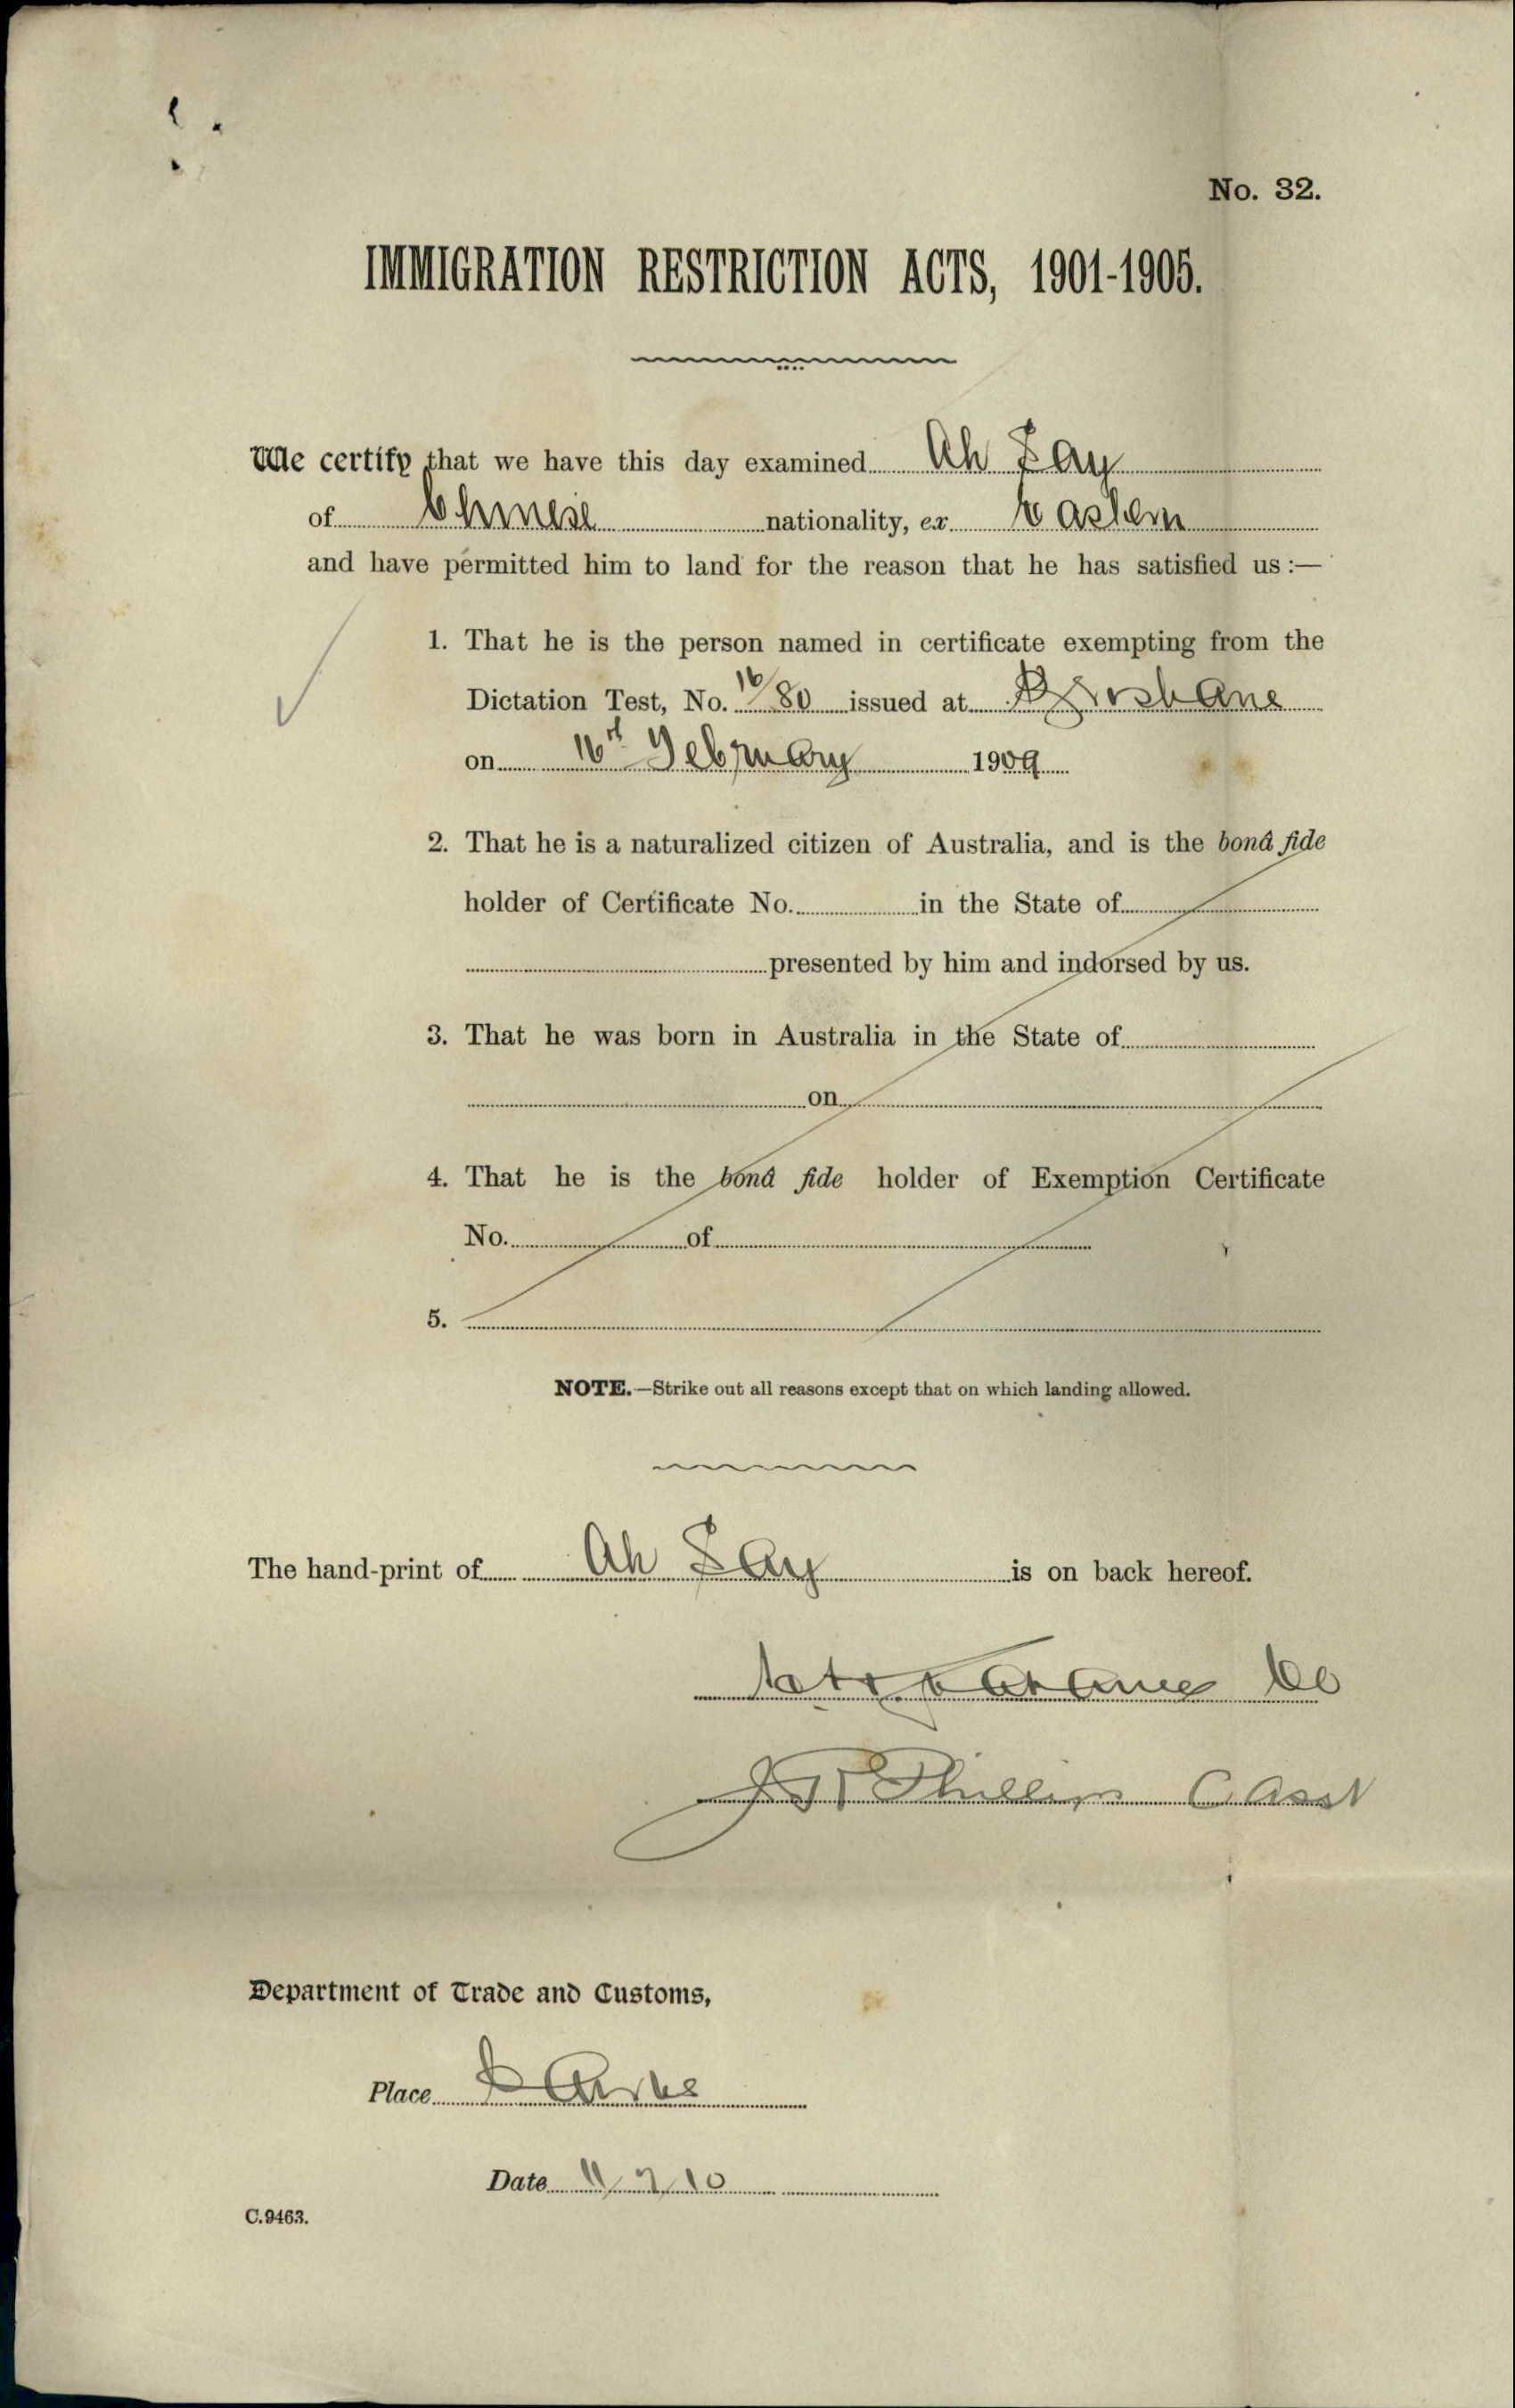 No. 32.
IMMIGRATION RESTRICTION ACTS, 1901-1905.
We certify that we have this day examined Ah Say
of Chinese nationality, ex Eastern
and have permitted him to land for the reason that he has satisfied us :—
1. That he is the person named in certificate exempting from the
Dictation Test, No. 16/80 issued at Brisbane
on 16th February 1909
2. That he is a naturalized citizen of Australia, and is the bonâ fide
holder of Certificate No. in the State of
presented by him and indorsed by us.
3. That he was born in Australia in the State of
on
4. That he is the bonâ fide holder of Exemption Certificate
No. of
5.
NOTE.—Strike out all reasons except that on which landing allowed.
The hand-print of Ah Say is on back hereof.
Phillips C Asst
Department of Trade and Customs,
Place Cairns
Date 11/7/10
C.9463.